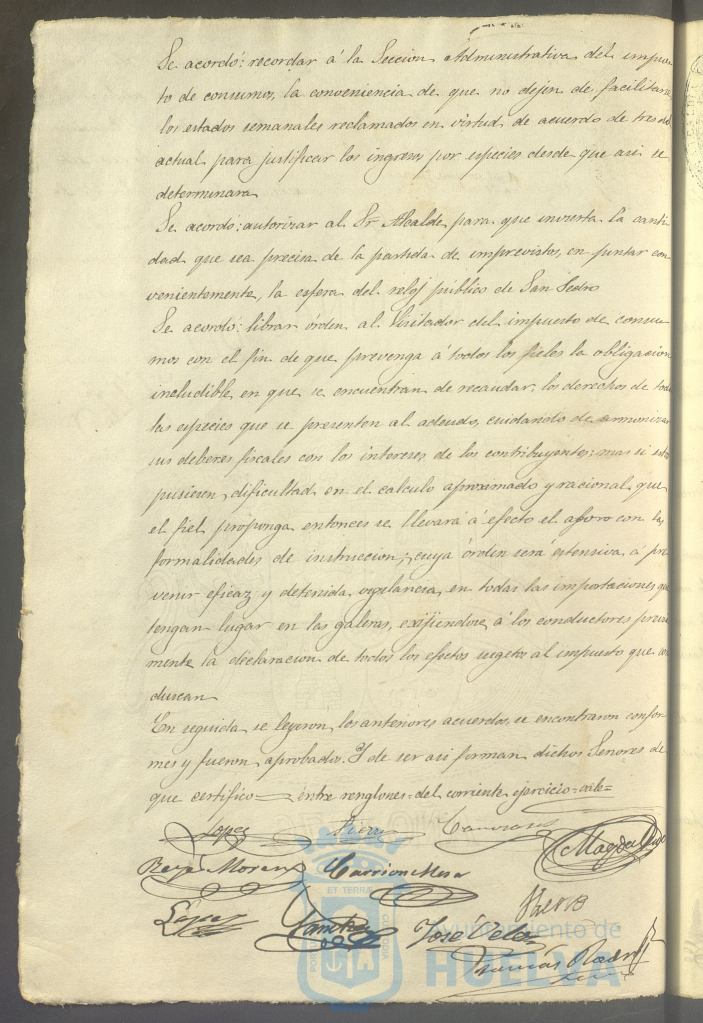 Se acordó: recordar á la Seccion Administrativa del impues
to de consumos, la conveniencia de que no dejen de facilitarse
los estados semanales reclamados en virtud de acuerdo de tres del
actual para justificar los ingresos por especies desde que asi se
determinara
Se acordó: autorizar al Sr Alcalde para que invierta la canti
dad que sea precisa de la partida de imprevistos, en pintar con
venientemente, la esfera del reloj publico de San Pedro
Se acordó: librar órden al Visitador del impuesto de consu
mos con el fin de que prevenga á todos los fieles la obligacion
includible en que se encuentran de recaudar los derechos de toda
las especies que se presenten al adeudo, cuidando de armonizar
sus deberes fiscales con los intereses de los contribuyentes; mas si estos
pusiesen dificultad en el calculo aproximado y racional que
el fiel proponga entonces se llevará á efecto el aforo con las
formalidades de instruccion, cuya órden será estensiva á pre
venir eficaz y detenida vigilancia en todas las importaciones que
tengan lugar en las galeras, exijiendose á los conductores previa
mente la declaracion de todos los efectos sugetos al impuesto que con
duzcan
En seguida se leyeron los anteriores acuerdos, se encontraron confor-
mes y fueron aprobados. Y de ser asi forman dichos Señores de
que certifico = entre renglones = del corriente ejercicio = vale =
Lopez
Rey á Moreno Carrion Mesa
López Sanchez José Velez
Tomás
ET TERRÆ
Ayuntamiento de
HUELVA